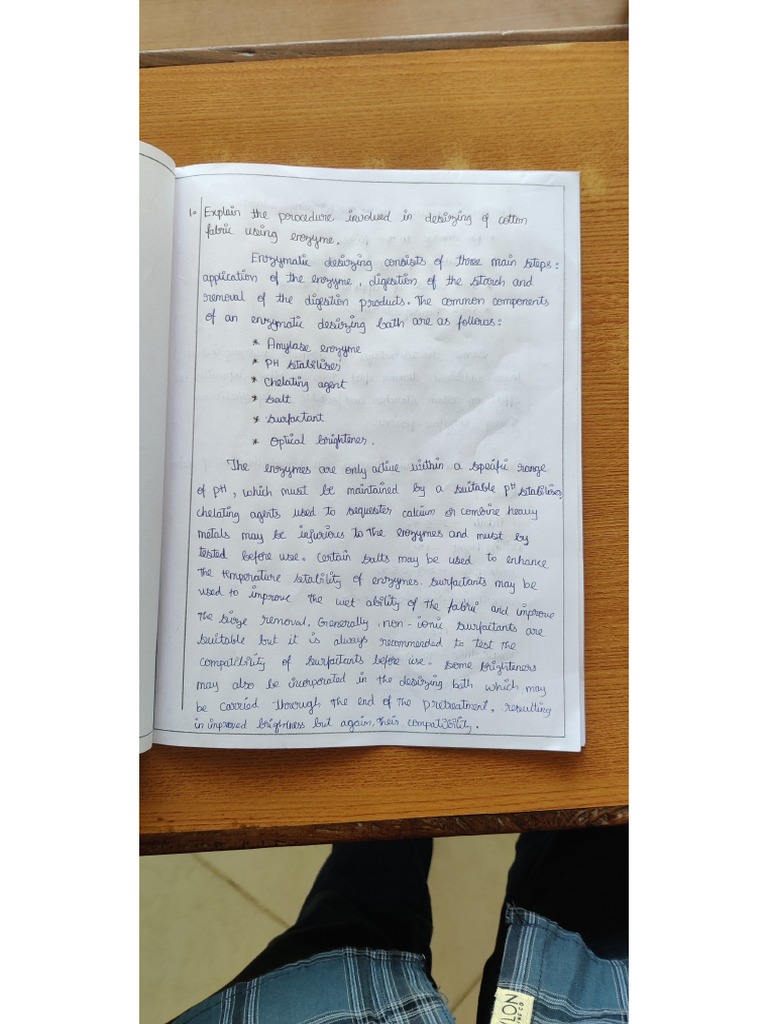 1. Explain the procedure involved in desizing of cotton
fabric using enzyme.
Enzymatic desizing consists of three main steps:
application of the enzyme, digestion of the starch and
removal of the digestion products. The common components
of an enzymatic desizing bath are as follows:
* Amylase enzyme
* PH stabiliser
* Chelating agent
* Salt
* Surfactant
* Optical brightener.
The enzymes are only active within a specific range
of pH, which must be maintained by a suitable pH stabiliser
chelating agents used to sequester calcium or combine heavy
metals may be injurious to the enzymes and must by
tested before use. Certain salts may be used to enhance
the temperature stability of enzymes. Surfactants may be
used to improve the wet ability of the fabric and improve
the size removal. Generally, non-ionic surfactants are
suitable but it is always recommended to test the
compatibility of surfactants before use. Some brighteners
may also be incorporated in the desizing bath which may
be carried through the end of the pretreatment, resulting
in improved brightness but again, their compatibility.
LON
THE CO